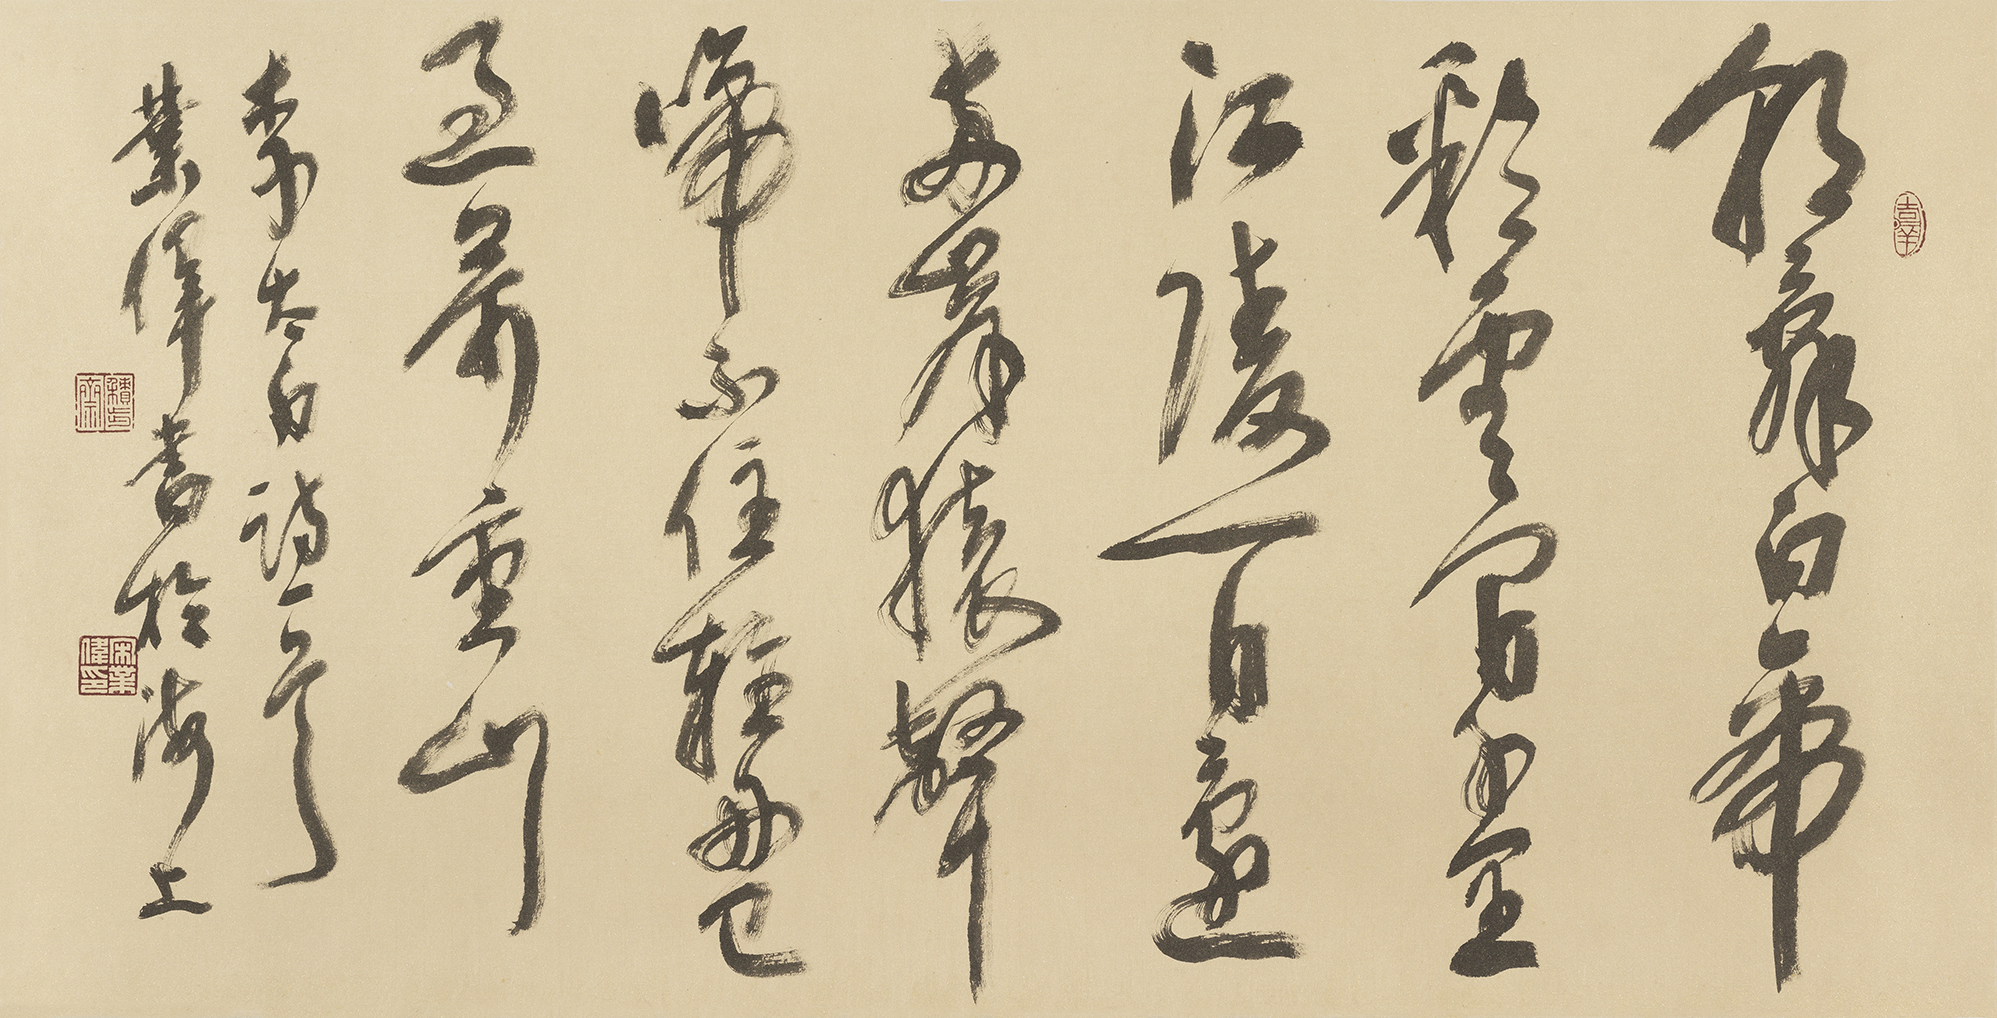 朝辭白帝
彩雲間千里
江陵一日還
兩岸猿聲
啼不住輕舟已
過萬重山
李太白詩一首
業偉書於海上
宋業偉印